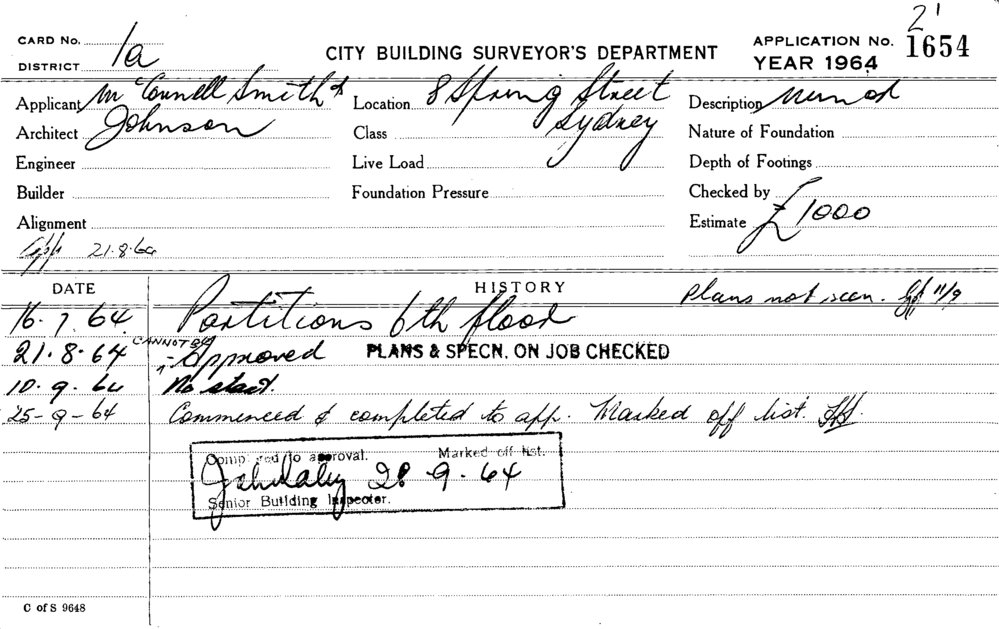 21
CARD No.
DISTRICT 1a
CITY BUILDING SURVEYOR'S DEPARTMENT
APPLICATION No. 1654
YEAR 1964
Applicant McConnell Smith &
Architect Johnson
Engineer
Builder
Alignment
App 21.8.64
Location 8 Spring Street
Sydney
Class
Live Load
Foundation Pressure
Description
Nature of Foundation
Depth of Footings
Checked by
Estimate £1000
DATE HISTORY
Plans not seen. 11/9
16.7.64 Partitions 6th floor
21.8.64 CANNOT BE Approved PLANS & SPECN. ON JOB CHECKED
10.9.64 No start.
25-9-64 Commenced & completed to app. Marked off list.
Completed to approval. Marked off list.
28.9.64
Senior Building Inspector.
C of S 9648